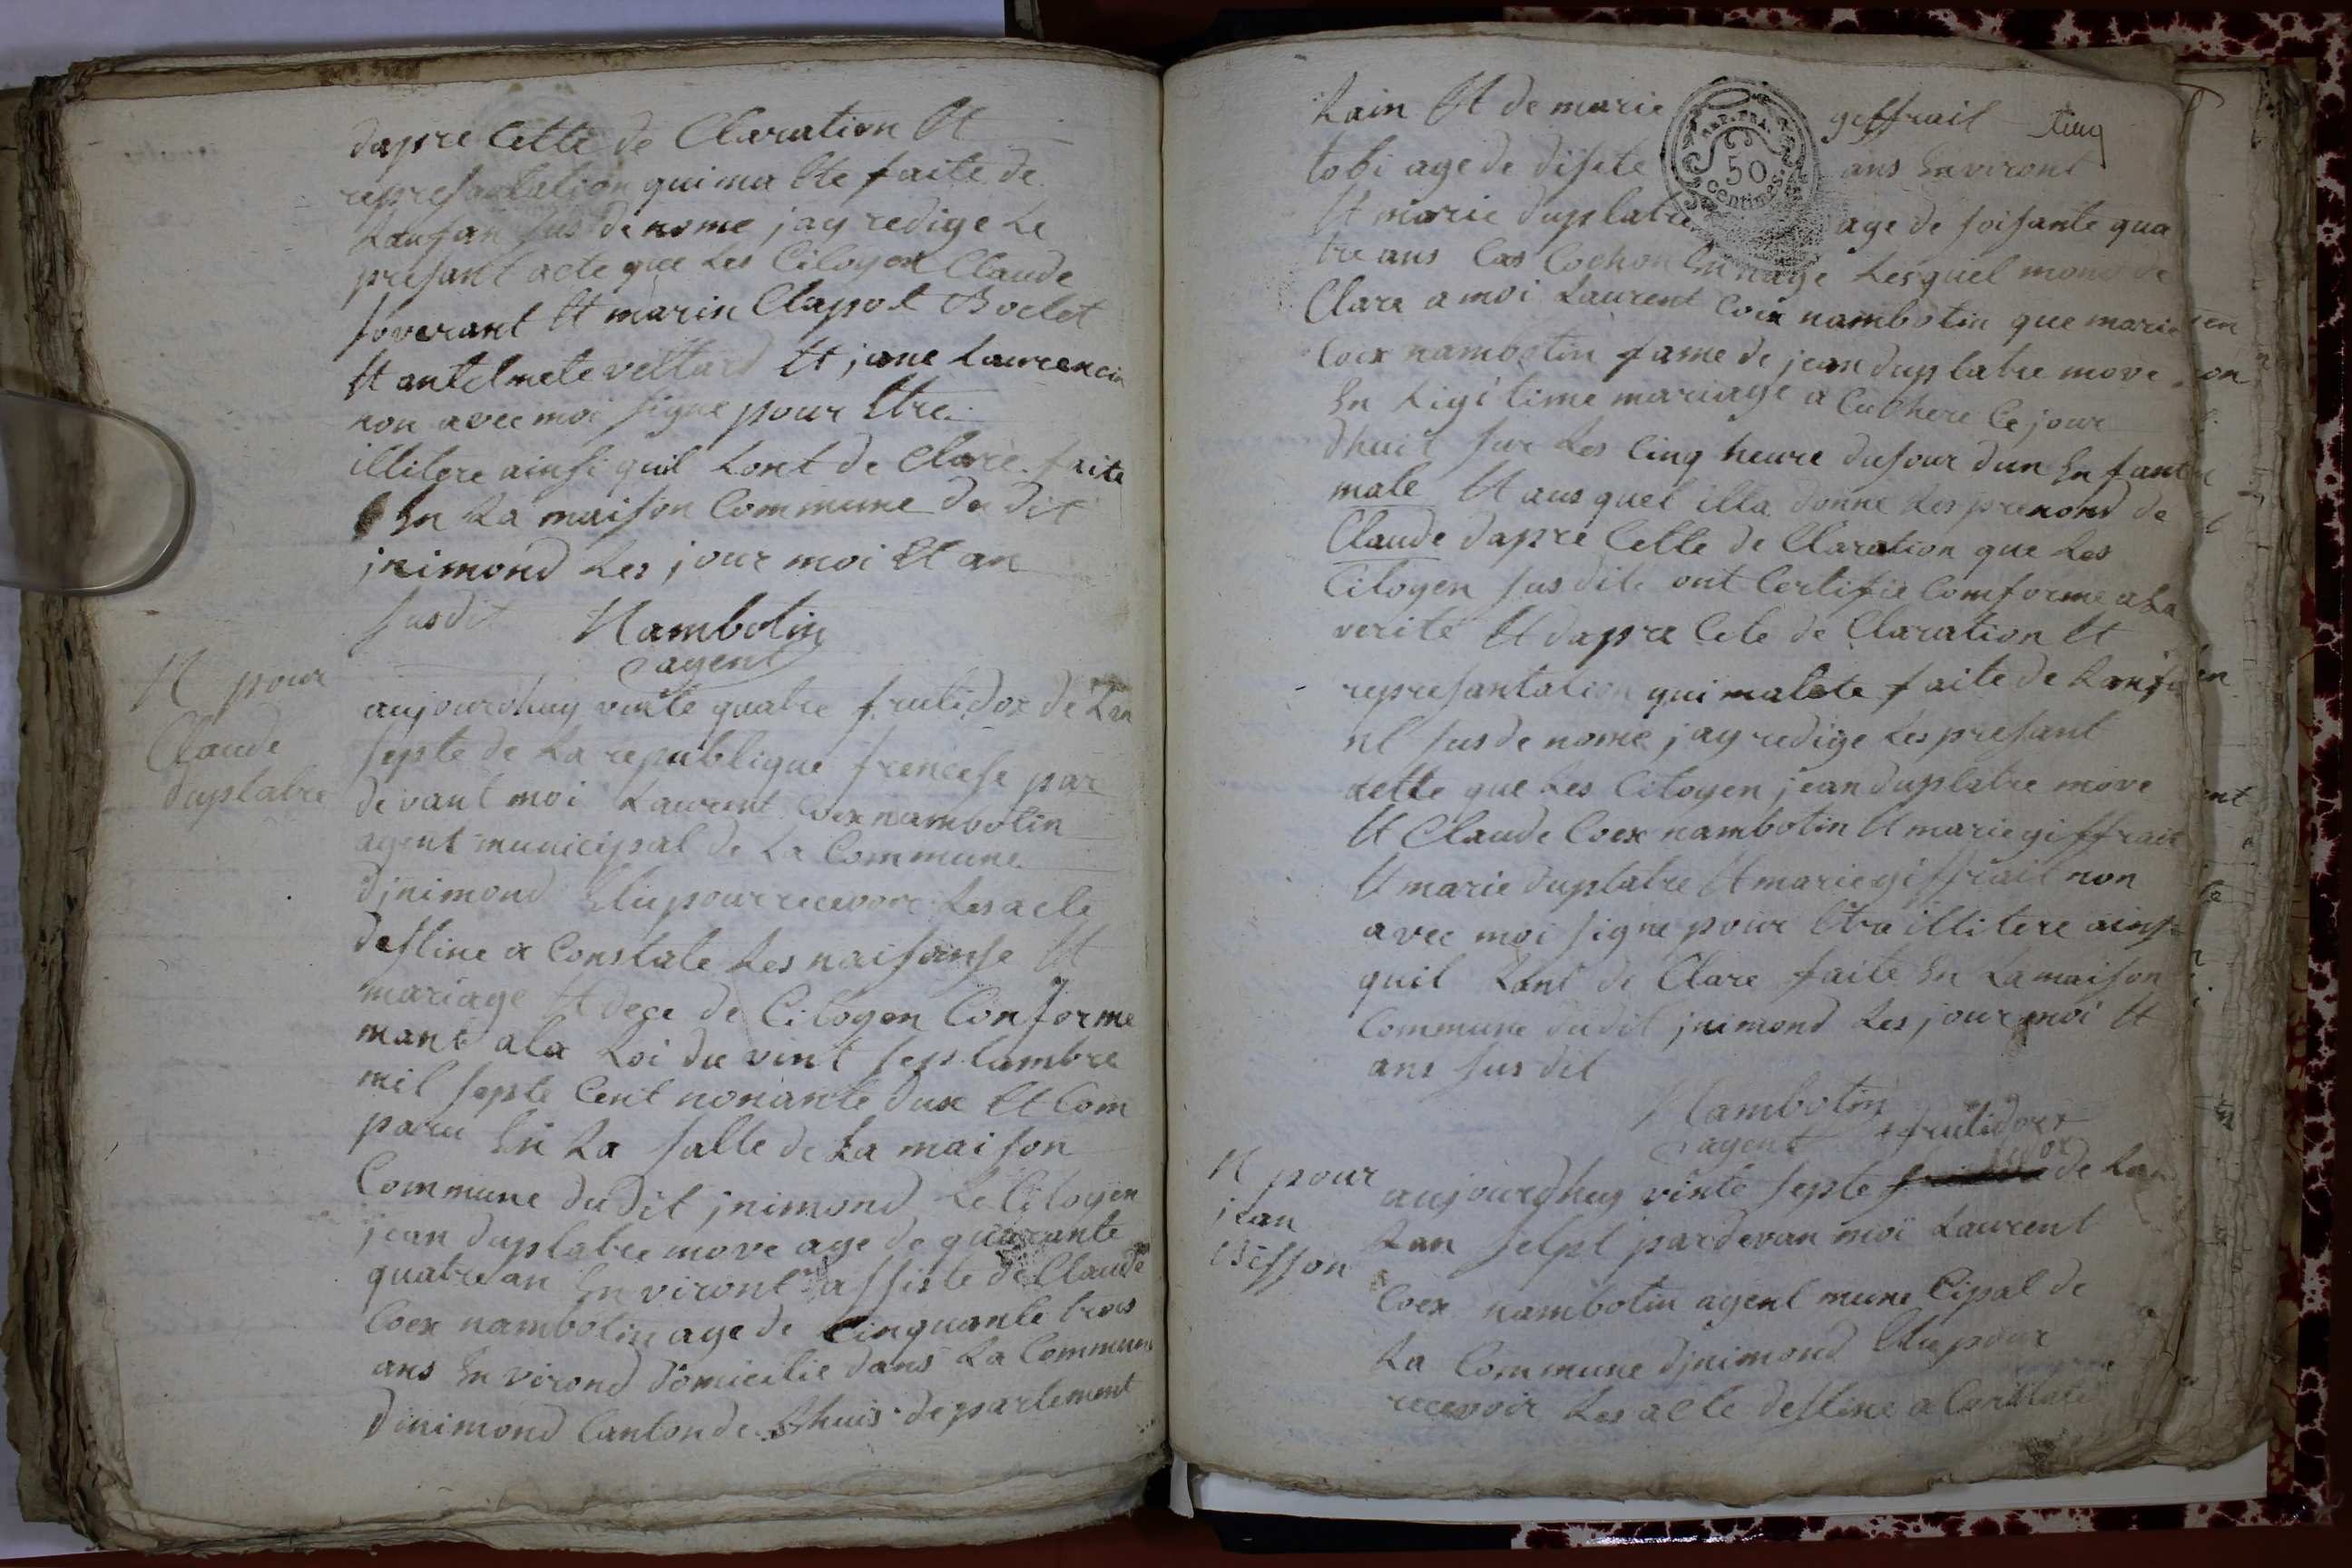 dapre Cette de Claration Et
represantation qui ma Ete faite de
Lanfan sus de nome jay redige Le
presant acte que Les Citoyen Claude
soverant Et marin Clapot Boclet
Et antelmete vettard Et jane Laurencin
non avec moi signe pour Etre
illitere ainsi quil Lont de Clare faite
En La maison Commune du dit
jnimond Les jour moi Et an
susdit Nambotin
agent
N pour
Claude
duplatre
aujourdhuy vinte quatre frutidor de Lan
septe de La republique francese par
devant moi Laurent Coex nambotin
agent municipal de La Commune
djnimond Elu pour recevore Les acte
destine a Constate Les naisanse Et
mariage Et dece de Citoyen Conforme
mant a la Loi du vint septambre
mil septe Cent nonante dux Et Com
paru En La salle de La maison
Commune du dit jnimond Le Citoyen
jean duplatre move age de quarante
quatre an En viront assiste de Claude
Coex nambotin age de Cinquante trois
ans En virond domicilie dans La Commune
dinimond Canton de Lhuis departement
Lain Et de marie geffrail
tobi age de disete ans En viront
Et marie duplatre age de soisante qua
tre ans Cas Cochon En nage Lesquel mon de
Clare a moi Laurent Coex nambotin que marie
Coex nambotin fame de jean duplatre move
En Ligitime mariage a Cuchere Ce jour
dhuit sur Les Cinq heure du sour dun En fant
male Et aus quel illa donne Les prenond de
Claude dapre Cette de Claration que Les
Citoyen sus dite ont Certifie Comforme a La
verite Et dapre Cete de Claration Et
represantation qui malete faite de Lanfa
nt sus de nome jay redige Les presant
aette que Les Citoyen jean duplatre move
Et Claude Coex nambotin Et marie giffrait
Et marie duplatre Et marie giffrail non
avec moi signe pour Etre illitere ainsi
quil Lont de Clare faite En La maison
Commune du dit jnimond Les jour moi Et
ans sus dit
Nambotin
agent + frutidor +
N pour
jean
Besson
aujourdhuy vinte septe de Lan
Lan selpt pardevan moi Laurent
Coex nambotin agent mune Cipal de
La Commune djnimond Elu pour
recevoir Les acte destine a Constate
REP. FRA.
50
centimes